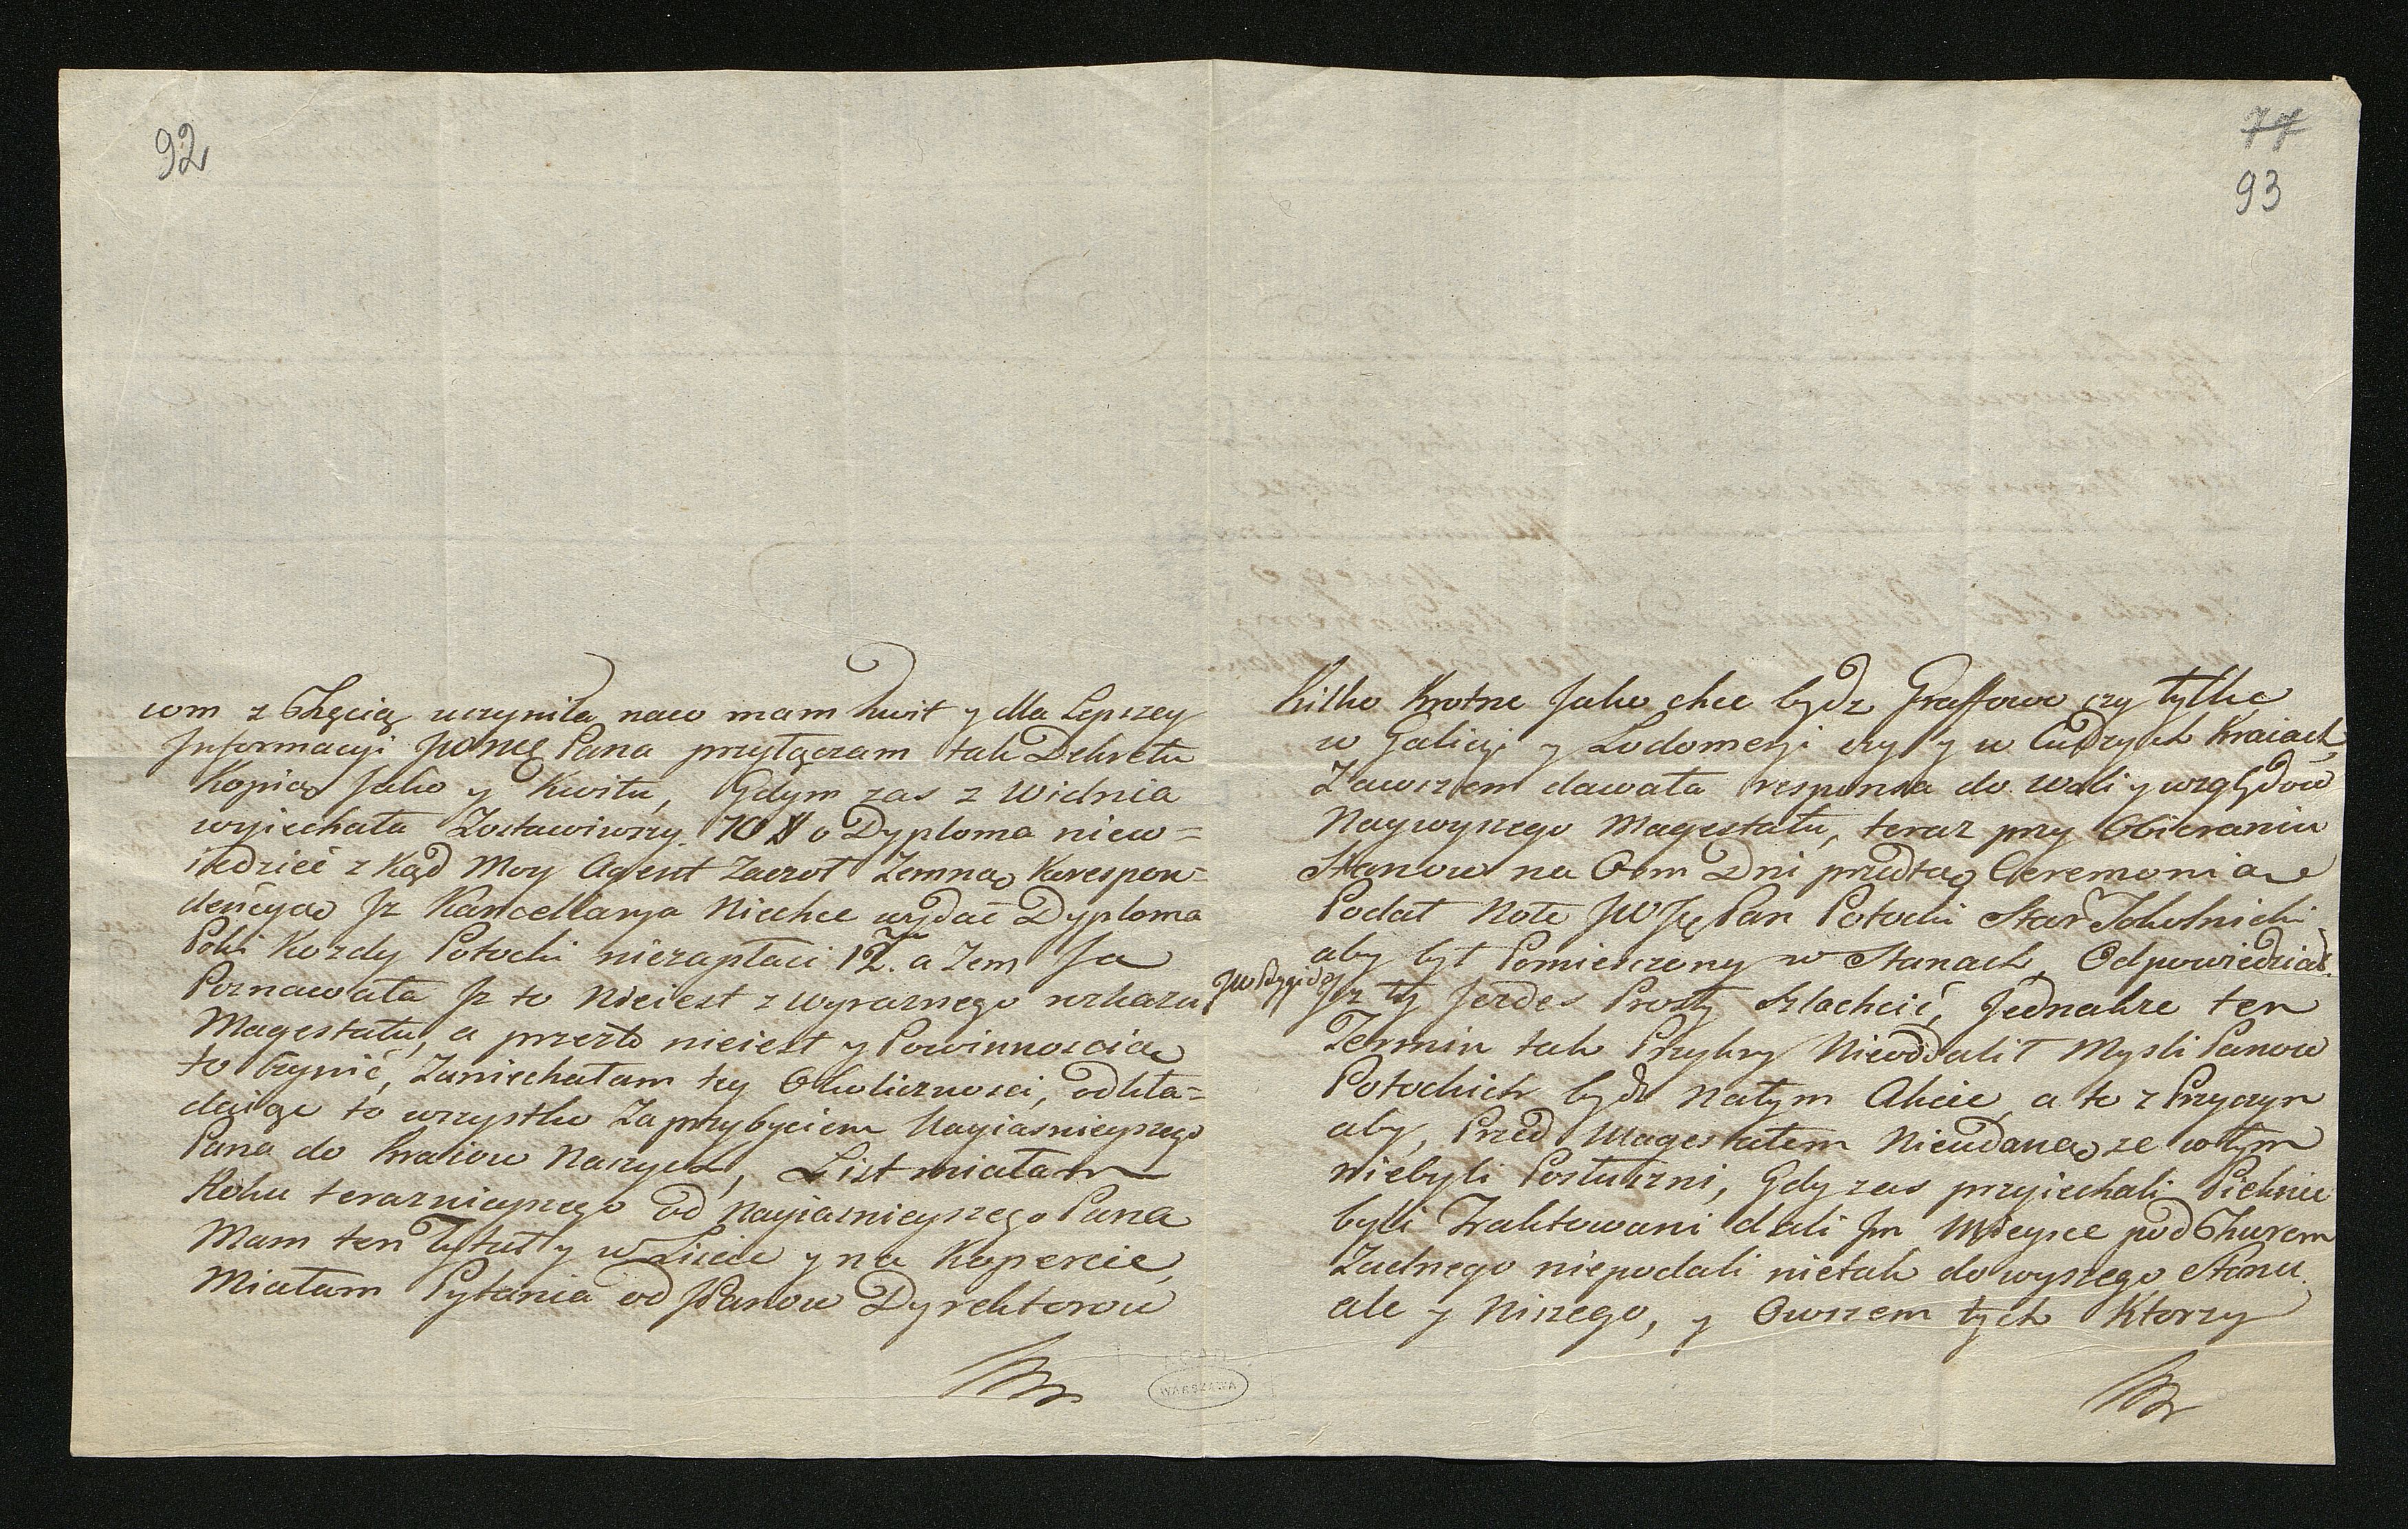 92
wom z Chęcią uczyniła, naco mam kwit y dla Lepszey
Jnformacyi Pana przyłączam tak Dekretu
Kopią Jako y Kwitu, Gdym zas z Widnia
wyiechała Zostawiwszy 70 # o Dyploma niew=
iedzieć z kąd Moy Agent Zaczoł Zemną Korespon=
dencyą Jz Kancellarya Niechce wydać Dyploma
Poki Kozdy Potocki niezapłaci 12. a Zem Ja
Poznawała Jz to Nieiest z wyraznego rozkazu
Magestatu, a przezto nieiest y Powinnoscią
to Czynić, Zaniechałam tey Okolicznosci, odkła=
daiąc to wszystko Zaprzybyciem Nayiasnieyszego
Pana do kraiow Naszych, List miałam
Roku teraznieyszego od Nayiasnieyszego Pana
Mam ten Tytuł y w Liscie y na Kopercie,
Miałam Pytania od JPanow Dyrektorow
WARSZAWA
77
93
kilko Krotne Jako chce bydz Graffowo czy tylko
w Galicyi y Lodomeryi czy y w Cudzych Kraiach
Zawszem dawała responsa do woli y względow
Naywyszego Magestatu, teraz przy Obieraniu
Stanow na Osm Dni przedtą Ceremonią
Podał Note JW Pan Potocki Star Sokolnicki
aby był Pomieszczony w Stanach, Odpowiedział
Jz ty Jezdes Prosty Szlachcić, Jednakze ten
Termin tak Przykry Nieoddalił Mysli Panow
Potockich bydz Natym Akcie, a to z Przyczyn
aby, Przed Magestatem Nieudaną ze wtym
niebyli Posłuszni, Gdy zas przyiechali Pieknie
byli Traktowani dali Jm Mieysce pod Churem
Zadnego niepodali nietak do wyszego Stanu
ale y Niszego, y Owszem tych Ktorzy